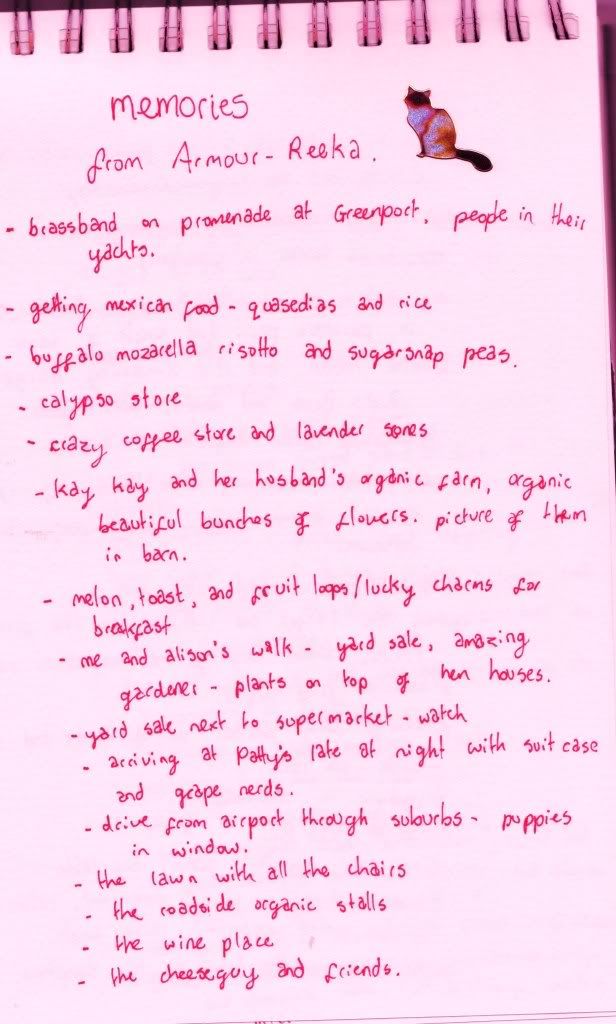 memories
from Armour-Reeka.
- brassband on promenade at Greenport, people in their
yachts.
- getting mexican food - quasedias and rice
- buffalo mozarella risotto and sugarsnap peas.
- calypso store
- crazy coffee store and lavender scones
- kay, kay, and her husband's organic farm, organic
beautiful bunches of flowers. picture of them
in barn.
- melon, toast, and fruit loops/lucky charms for
breakfast
- me and alison's walk - yard sale, amazing
gardener - plants on top of hen houses.
- yard sale next to supermarket - watch
- arriving at Patty's late at night with suitcase
and grape nerds.
- drive from airport through suburbs - puppies
in window.
- the lawn with all the chairs
- the roadside organic stalls
- the wine place
- the cheeseguy and friends.